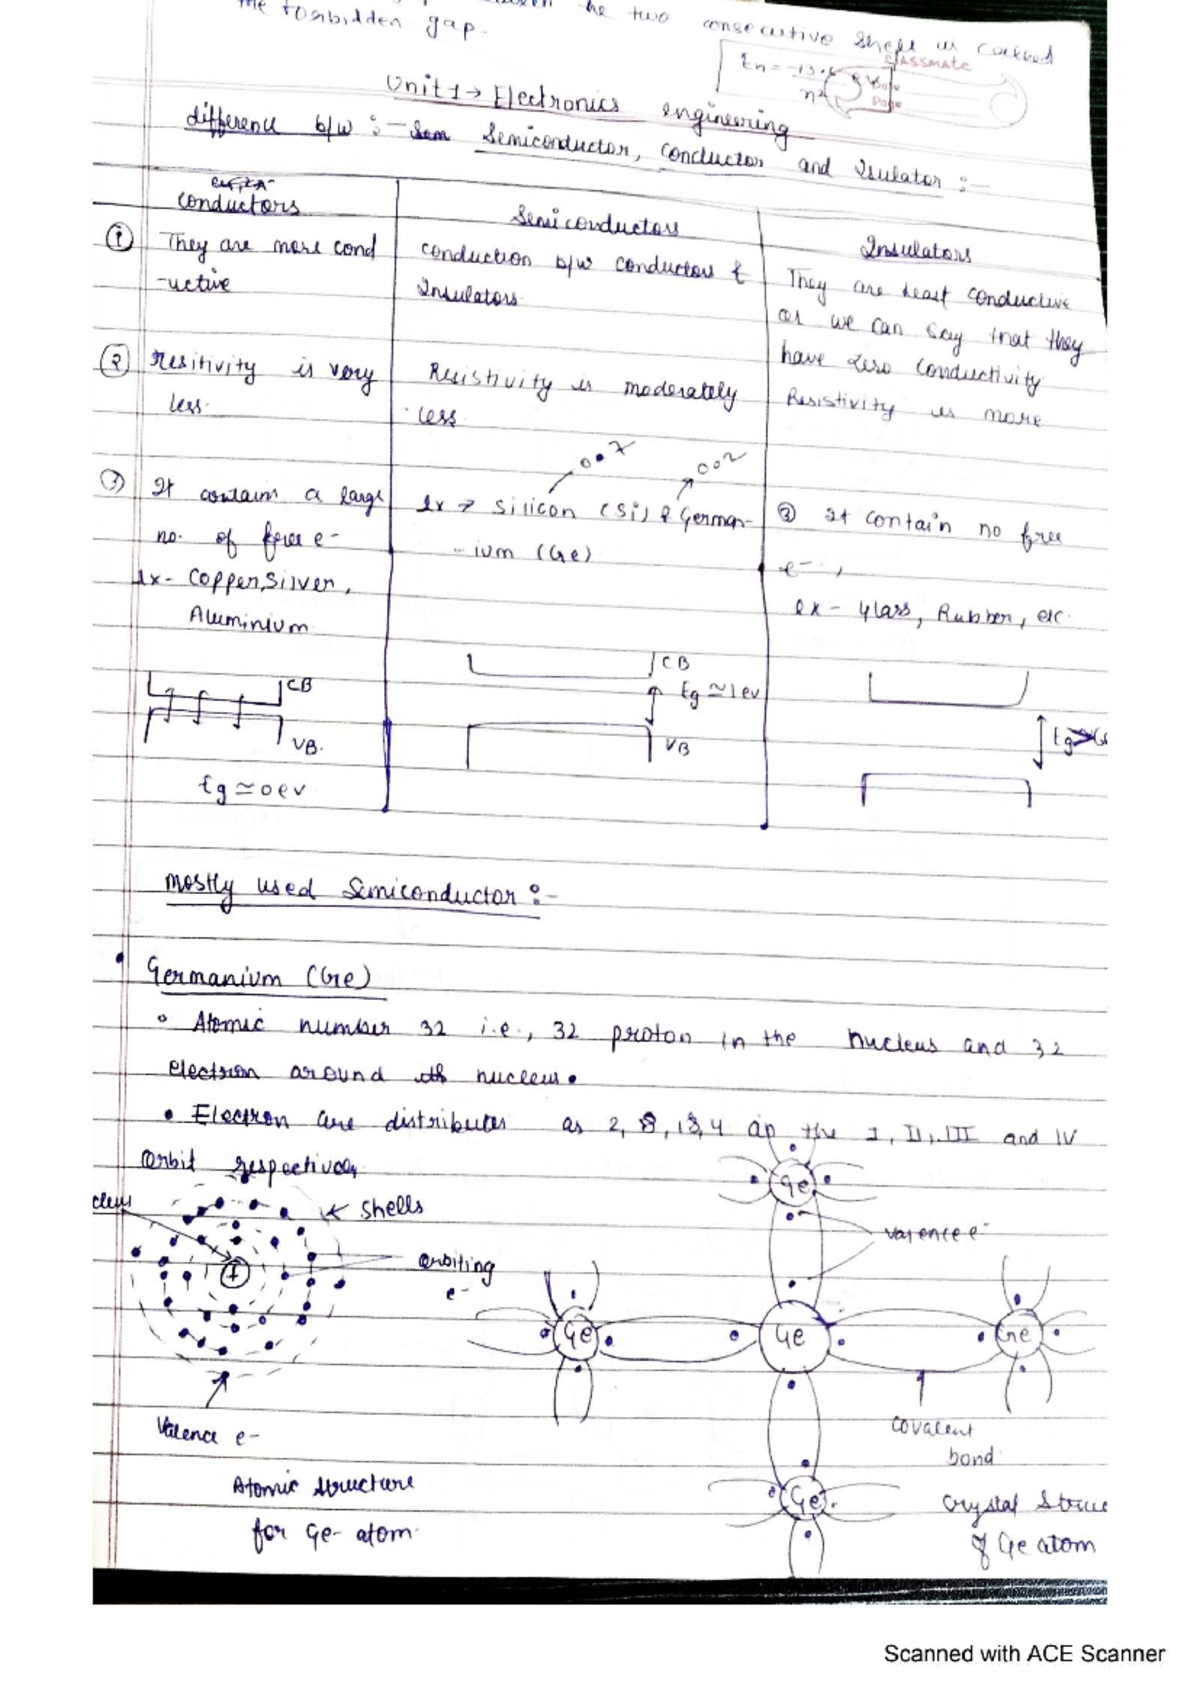 the two consecutive shell is called
the forbidden gap.
classmate
Date
Page
En = -13.6
n²
Unit 1 → Electronics engineering
difference b/w :- Semiconductor, Conductor and Isulator :-
conductors
Semiconductors
Insulators
① They are more cond
-uctive
conduction b/w conductors &
Insulators.
They are least conductive
or we can say that they
have zero conductivity
② resitivity is very
less.
Resistivity is moderately
less.
Resistivity is more
0.7
0.2
③ It contains a large
no. of free e-
ex- Copper, Silver,
Aluminium
ex → Silicon (Si) & German-
-ium (Ge)
③ It contain no free
e-,
ex - Glass, Rubber, etc.
CB
VB.
Eg ≃ 0 ev
CB
Eg ≃ 1 ev
VB
Eg >
Mostly used Semiconductor :-
• Germanium (Ge)
• Atomic number 32 i.e., 32 proton in the nucleus and 32
electron around nucleus.
• Electron are distributes as 2, 8, 18, 4 in the I, II, III and IV
orbit respectively
shells
orbiting
e-
Valence e-
Atomic structure
for Ge atom.
Ge
Valence e-
Ge
Ge
Ge
Covalent
bond
Ge
Crystal Struc
of Ge atom
Scanned with ACE Scanner